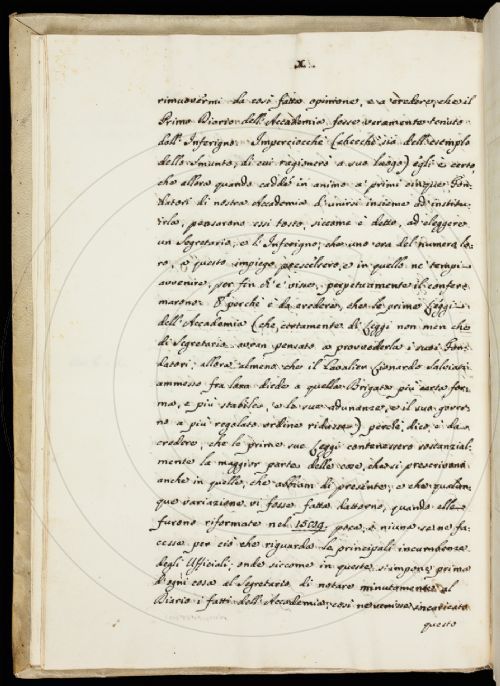 X.
rimuovermi da così fatta opinione, e a credere, che il
Primo Diario dell'Accademia fosse veramente tenuto
dall'Inferigno. Imperciocchè (checchè sia dell'esemplo
dello Smunto, di cui ragionerò a suo luogo) egli è certo,
che allora quando cadde in animo a' primi cinque Fon-
datori di nostra Accademia d'unirsi insieme ad istitu-
irla, pensarono essi tosto, siccome è detto, ad eleggere
un Segretario, e l'Inferigno, che uno era del numero lo-
ro, a questo impiego prescelsero, e in quello ne' tempi
avvenire, per fin ch'e' visse, perpetuamente il confer-
marono. E perchè è da credere, che le prime Leggi
dell'Accademia (che certamente di Leggi non men che
di Segretario avean pensato a provvederla i suoi Fon-
datori; allora almeno che il Cavalier Lionardo Salviati
ammesso fra loro diede a quella Brigata più certa for-
ma, e più stabile, e le sue adunanze, e il suo gover-
no a più regolato ordine ridusse) perchè, dico, è da
credere, che le prime sue Leggi contenessero sostanzial-
mente la maggior parte delle cose, che si prescrivono
anche in quelle, che abbiam di presente; e che qualun-
que variazione vi fosse fatta dattorno, quando elle
furono riformate nel 1589. poca, o niuna se ne fa-
cesse per ciò che riguarda le principali incumbenze
degli Ufficiali; onde siccome in queste s'impone prima
d'ogni cosa al Segretario di notare minutamente al
Diario i fatti dell'Accademia; così ne venisse incaricato
questo